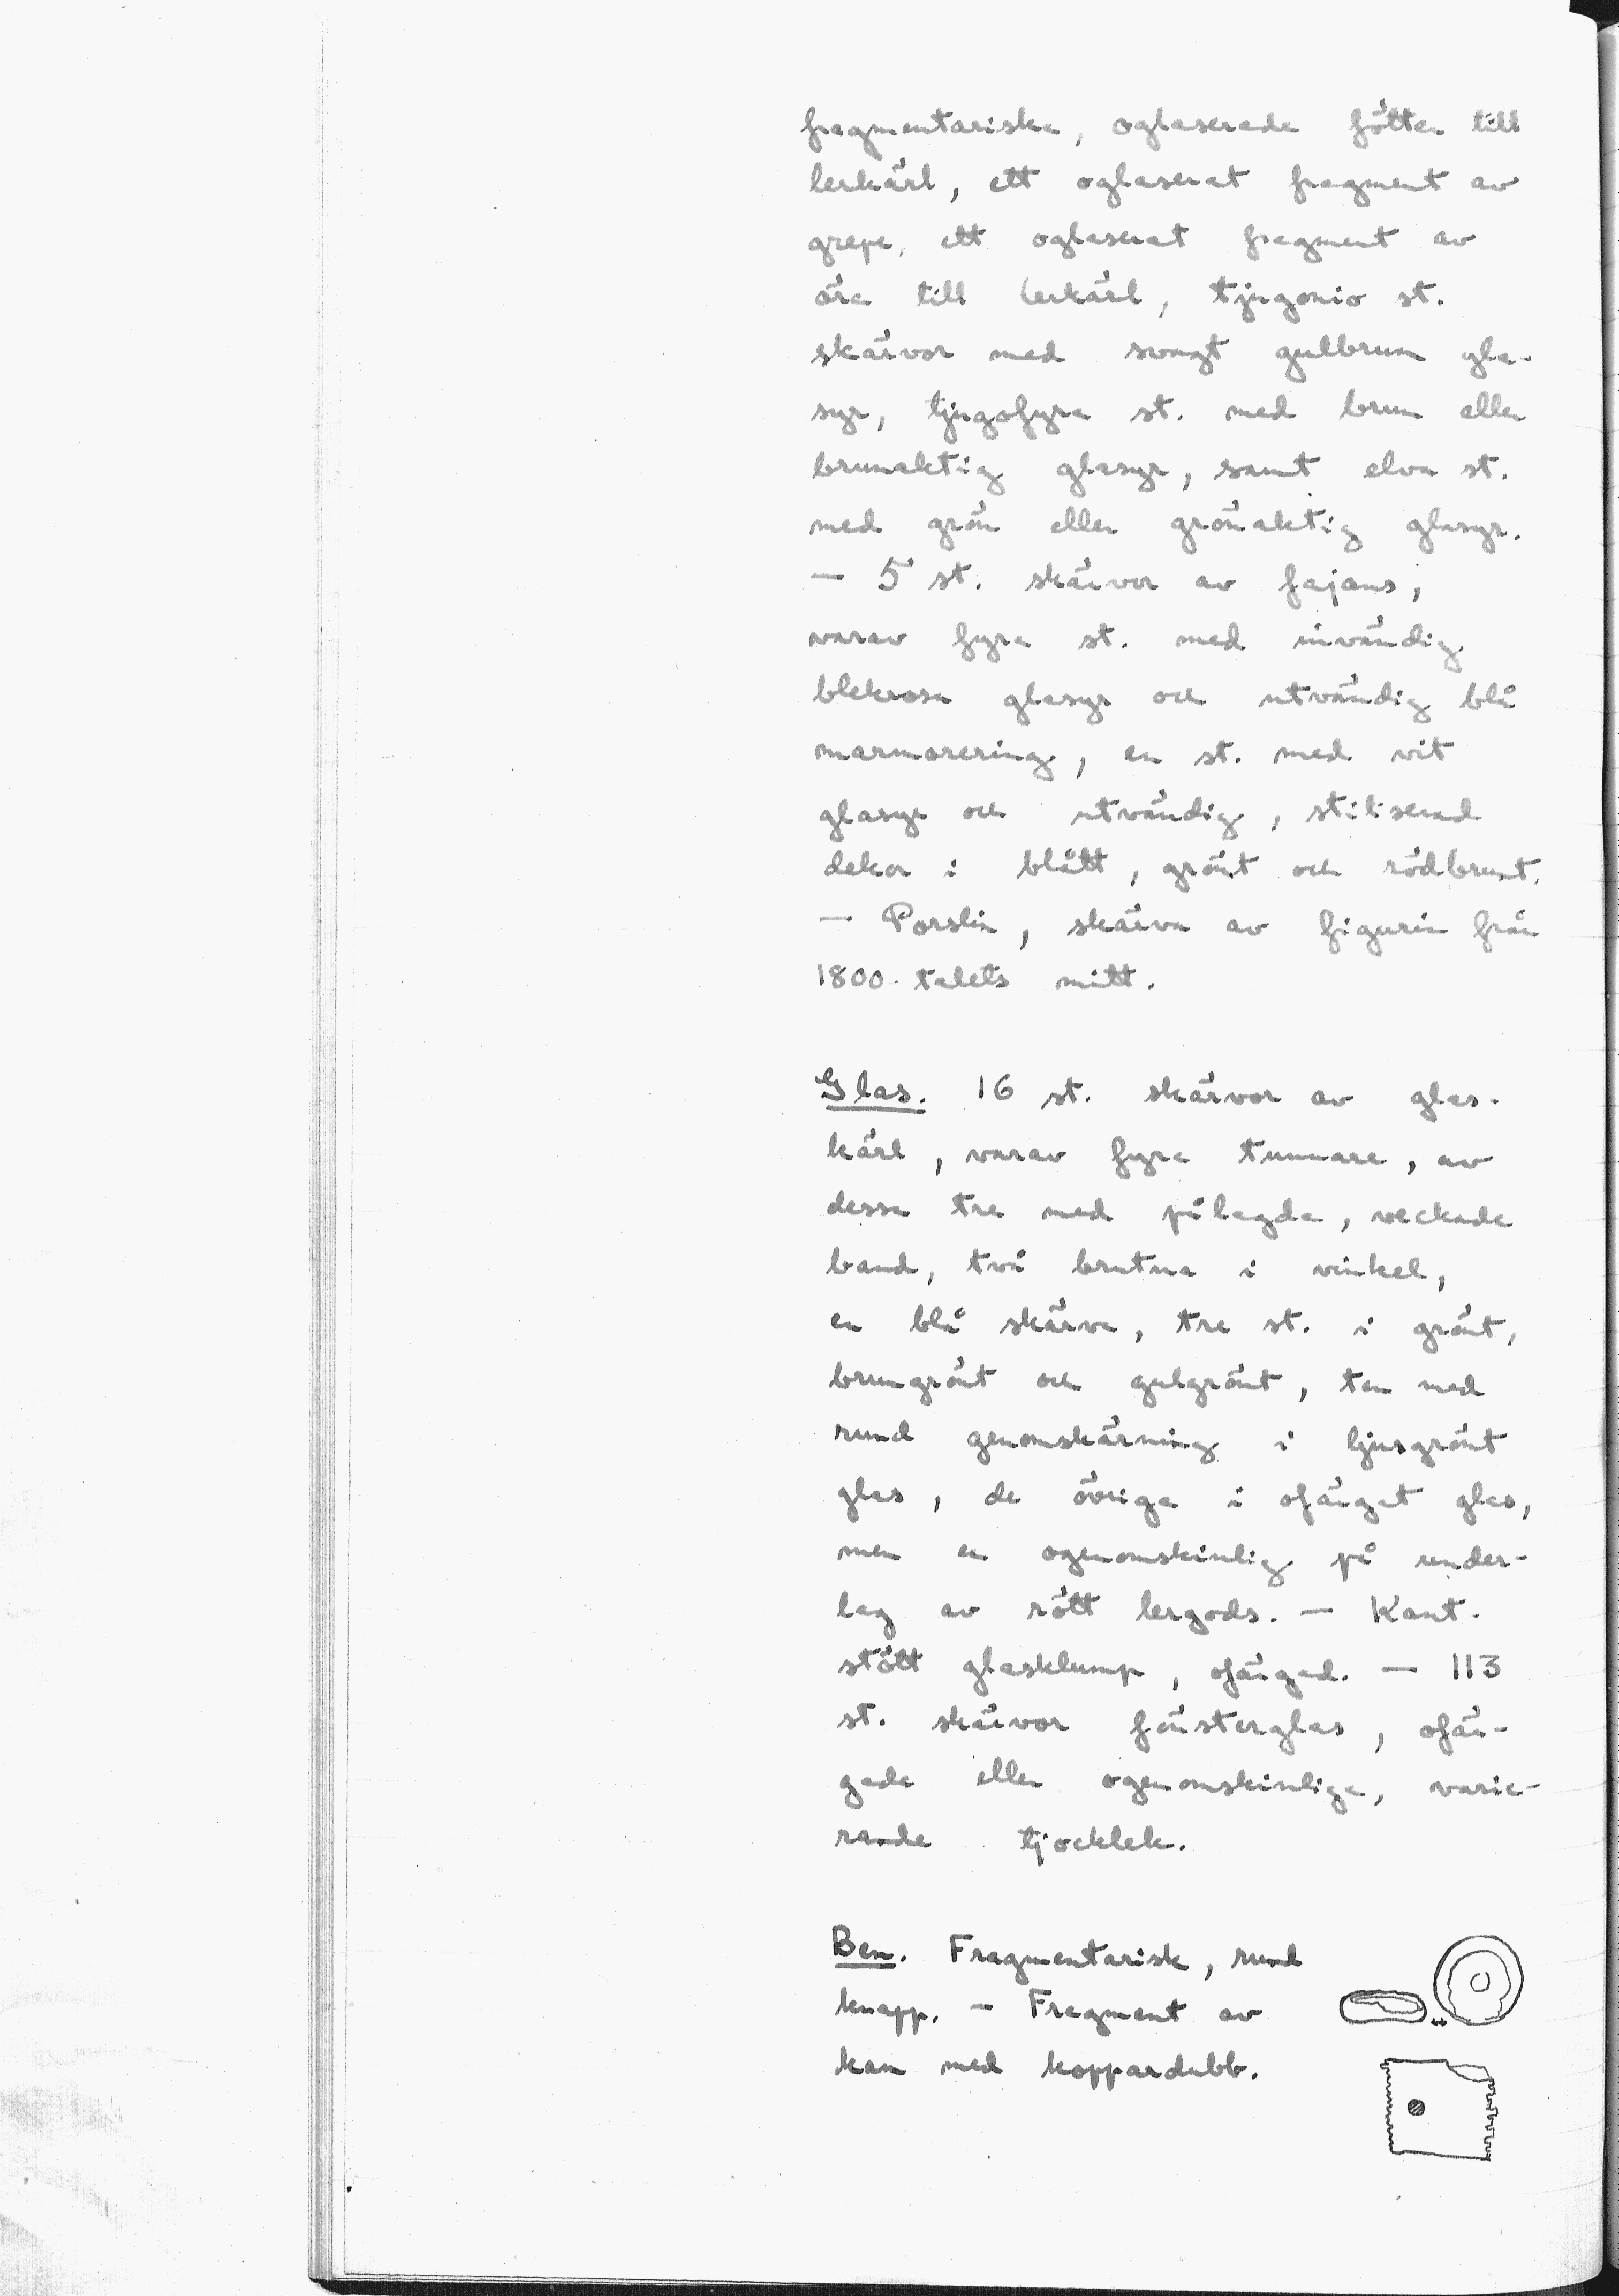 fragmentariska, oglaserade fötter till
lerkärl, ett oglaserat fragment av
grepe, ett oglaserat fragment av
öra till lerkärl, tjugonio st.
skärvor med svagt gulbrun gla-
syr, tjugofyra st. med brun eller
brunaktig glasyr, samt elva st.
med grön eller grönaktig glasyr.
— 5 st. skärvor av fajans,
varav fyra st. med invändig
blekrosa glasyr och utvändig blå
marmorering, en st. med vit
glasyr och utvändig, stiliserad
dekor i blått, grönt och rödbrunt.
— Porslin, skärva av figurin från
1800-talets mitt.
Glas. 16 st. skärvor av glas-
kärl, varav fyra tunnare, av
dessa tre med pålagda, veckade
band, två brutna i vinkel,
en blå skärva, tre st. i grönt,
brungrönt och gulgrönt, ten med
rund genomskärning i ljusgrönt
glas, de övriga i ofärgat glas,
men en ogenomskinlig på under-
lag av rött lergods. — Kant-
stött glasklump, ofärgad. — 113
st. skärvor fönsterglas, ofär-
gade eller ogenomskinliga, varie-
rande tjocklek.
Ben. Fragmentarisk, rund
knapp. — Fragment av
kam med koppardubb.